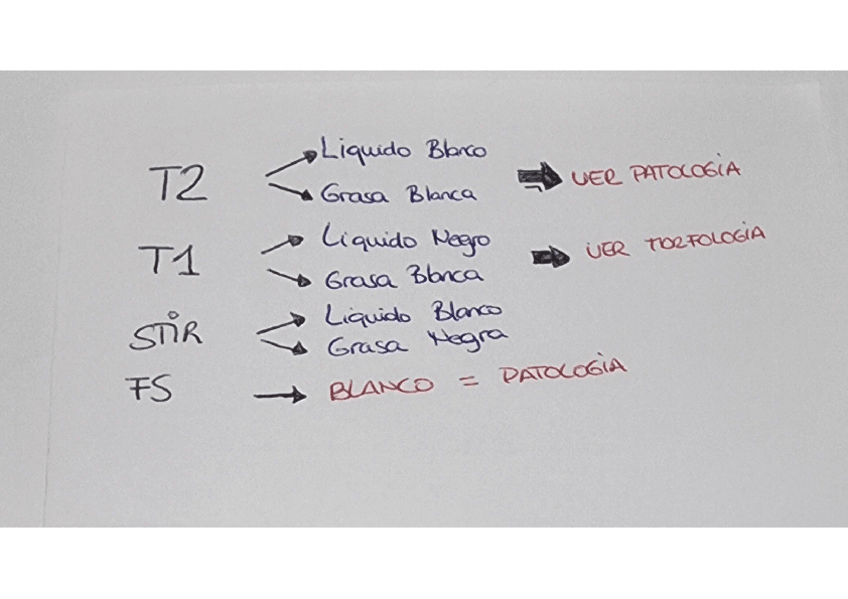 T2 Liquido Blanco VER PATOLOGIA
Grasa Blanca
T1 Liquido Negro VER MORFOLOGIA
Grasa Blanca
STIR Liquido Blanco
Grasa Negra
FS BLANCO = PATOLOGIA